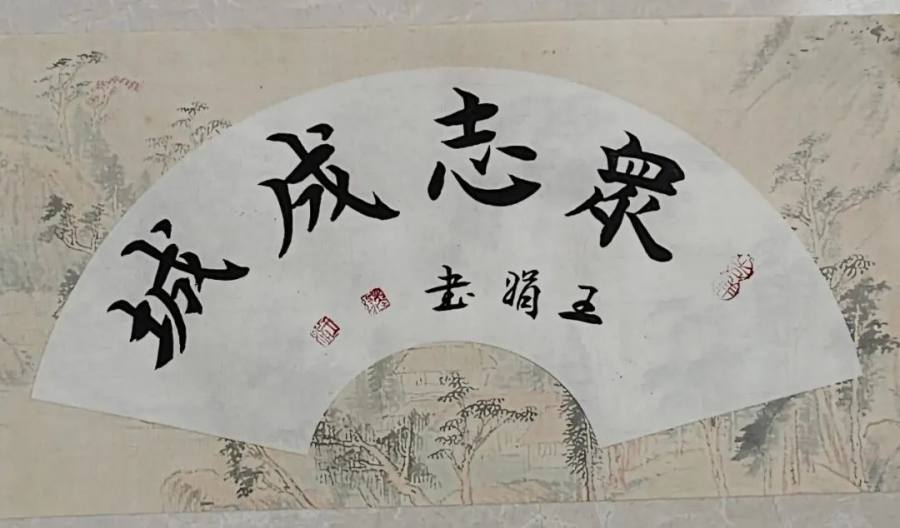 眾志成城
王娟書